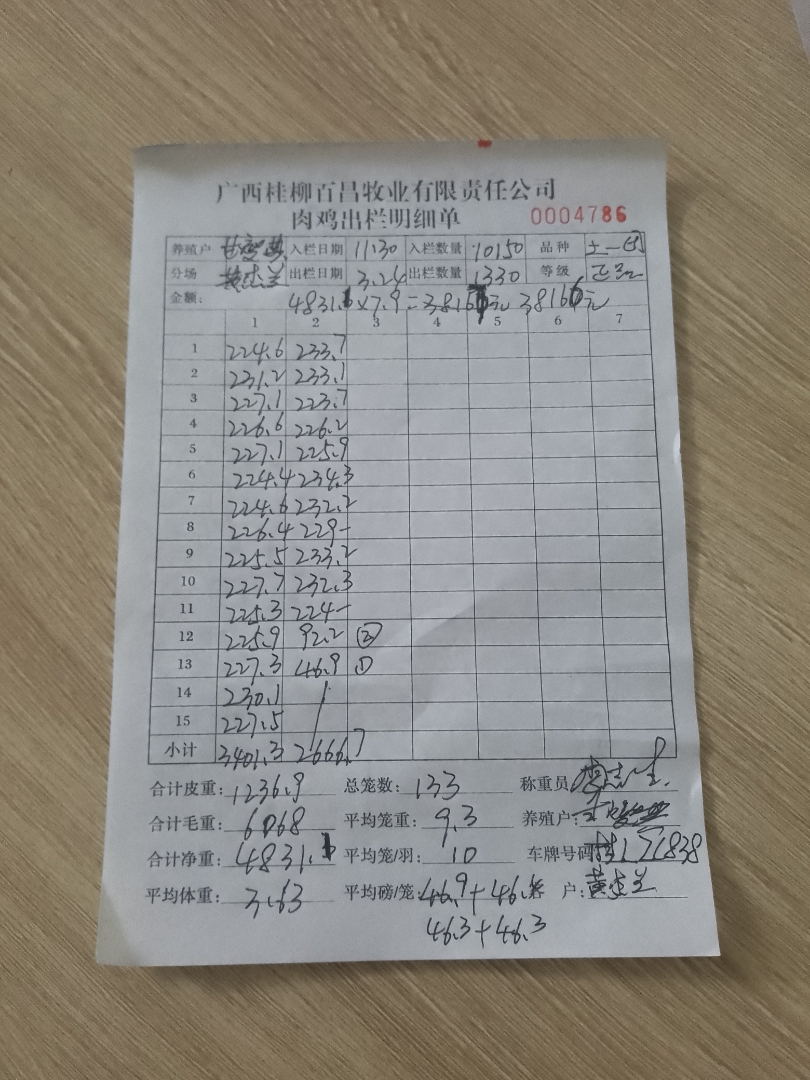 广西桂柳百昌牧业有限责任公司
肉鸡出栏明细单 0004786
养殖户 入栏日期 11.30 入栏数量 10150 品种 土一
分场 黄杰兰 出栏日期 3.24 出栏数量 1330 等级 正
金额: 4831.1×7.9=3816元 38166元
1 2 3 4 5 6 7
1 224.6 233.7
2 231.2 233.1
3 227.1 223.7
4 226.6 226.2
5 227.1 225.9
6 224.4 234.3
7 224.6 232.2
8 226.4 229-
9 225.5 233.2
10 227.7 232.3
11 225.3 224-
12 225.9 92.2 ②
13 227.3 46.9 ①
14 230.1 /
15 227.5
小计 3401.3 2666.7
合计皮重: 1236.9 总笼数: 133 称重员
合计毛重: 6068 平均笼重: 9.3 养殖户:
合计净重: 4831.1 平均笼/羽: 10 车牌号码
平均体重: 3.63 平均磅/笼: 46.9+46. 户: 黄杰兰
46.3+46.3